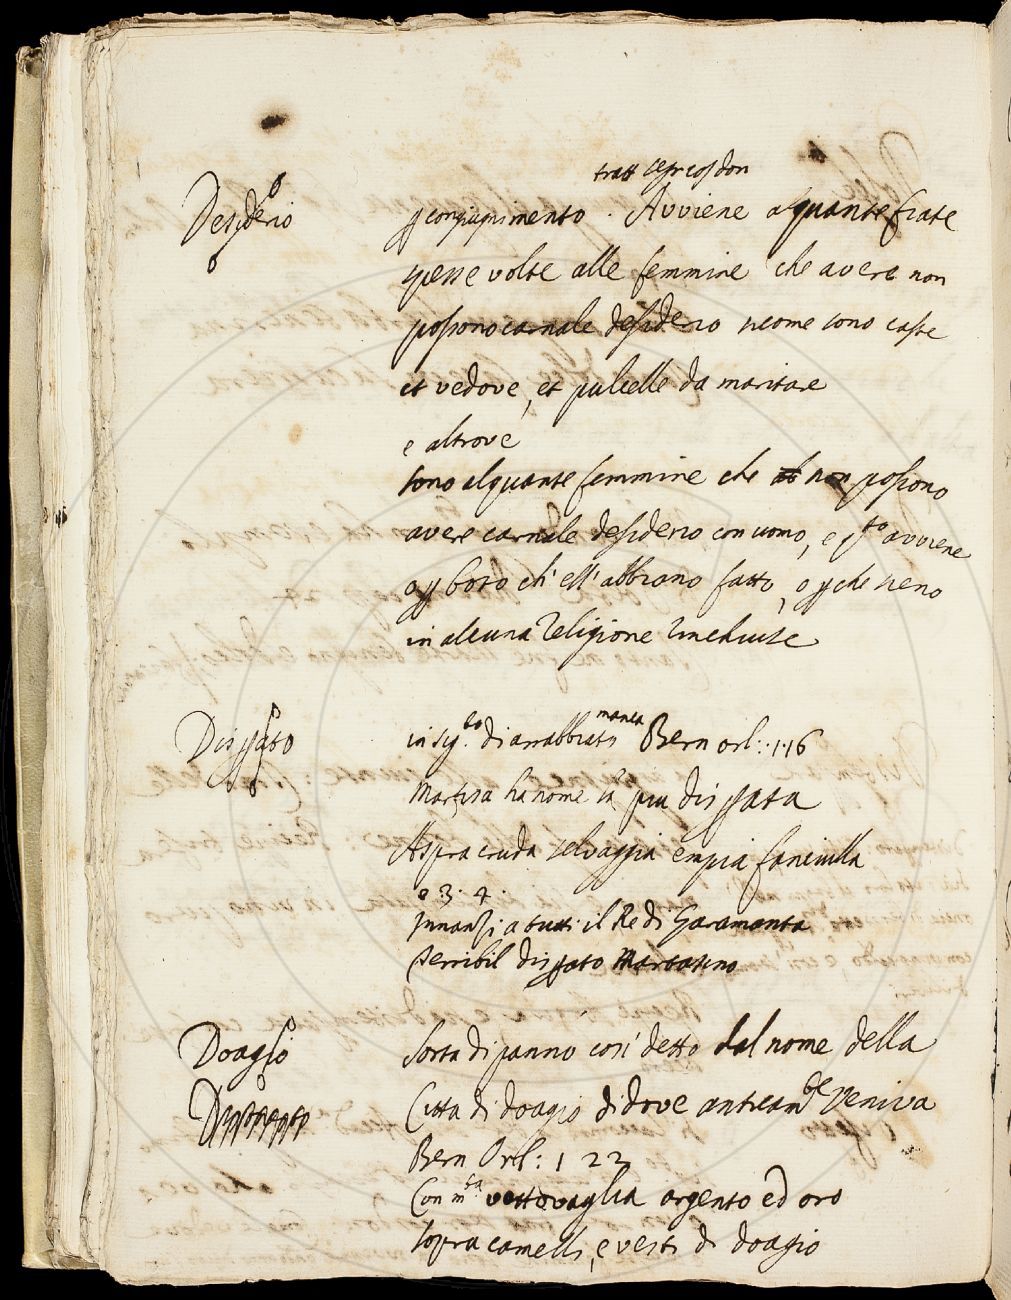 tratt segr cos don
Desiderio
p congiugnimento. Avviene alquante fiate
spesse volte alle femmine che avere non
possono carnale desiderio siccome sono caste
et vedove, et pulcelle da maritare
e altrove
sono alquante femmine che non possono
avere carnale desiderio con uomo, e qsto avviene
o p boto ch'ell'abbiano fatto, o p che sieno
in alcuna religione
Dispsato
in sig.to di arrabbiato Bern orl: 1.16
Marfisa ha nome la piu dispsata
Aspra cruda selvaggia empia fanciulla
e 3. 4.
Innanzi a tutti il Re di Garamanta
Terribil dispsato
Doagio
Sorta di panno cosi detto dal nome della
Citta di doagio di dove anticam.te veniva
Bern Orl: 1 22
Con m.ta vettovaglia argento ed oro
sopra camelli, e vesti di doagio